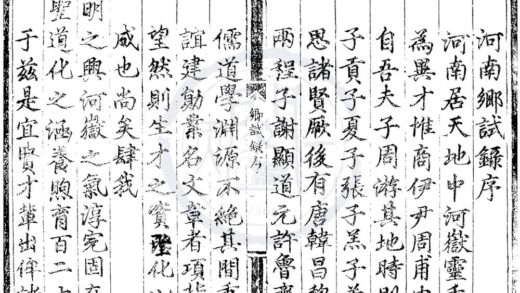 河南鄉試錄序
河南居天地中河嶽靈
為異才惟商伊尹周甫
自吾夫子周游其地時則
子貢子夏子張子羔子
思諸賢厥後有唐韓昌
兩程子謝顯道元許魯
鄉試錄序
儒道學淵源不絕其間
誼建勳業名文章者項
望然則生才之實聖化
咸也尚矣肆我
明之興河嶽之氣淳完固
聖道化之涵養煦育百二
于茲是宜賢才輩出